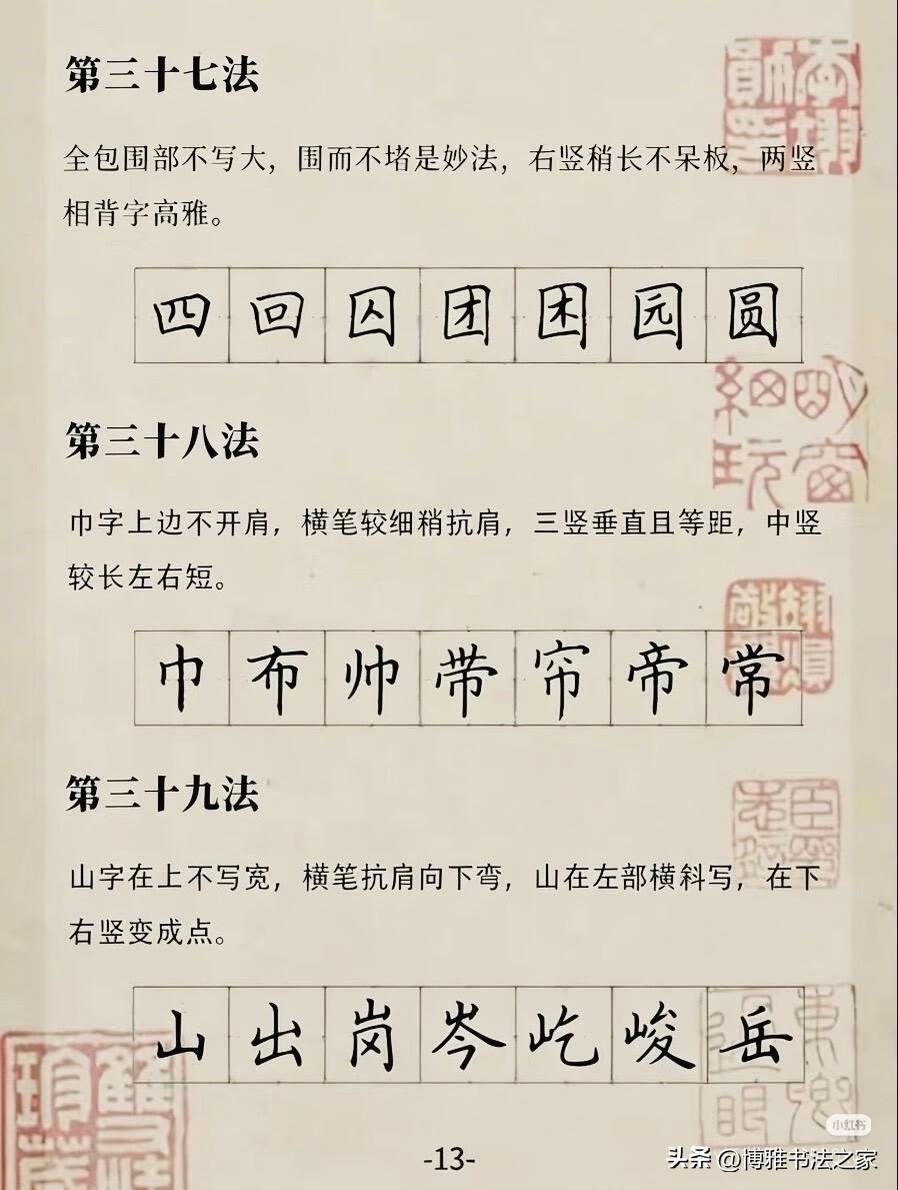 第三十七法
全包围部不写大，围而不堵是妙法，右竖稍长不呆板，两竖
相背字高雅。
四回囚团困园圆
第三十八法
巾字上边不开肩，横笔较细稍抗肩，三竖垂直且等距，中竖
较长左右短。
巾布帅带帘帝常
第三十九法
山字在上不写宽，横笔抗肩向下弯，山在左部横斜写，在下
右竖变成点。
山出岗岑屹峻岳
小红书
-13-
头条 @博雅书法之家